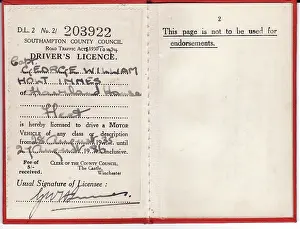 D.L. 2 No. 2/ 203922
SOUTHAMPTON COUNTY COUNCIL
ROAD TRAFFIC ACT, 1930
DRIVER'S LICENCE.
Capt.
GEORGE WILLIAM
HOLT INNES
of
Fleet
is hereby licensed to drive a MOTOR
VEHICLE of any class or description
from 28 August 19
27 August 19 inclusive.
Fee of
5/-
received.
CLERK OF THE COUNTY COUNCIL.
The Castle,
Winchester
Usual Signature of Licensee :
2
This page is not to be used for
endorsements.